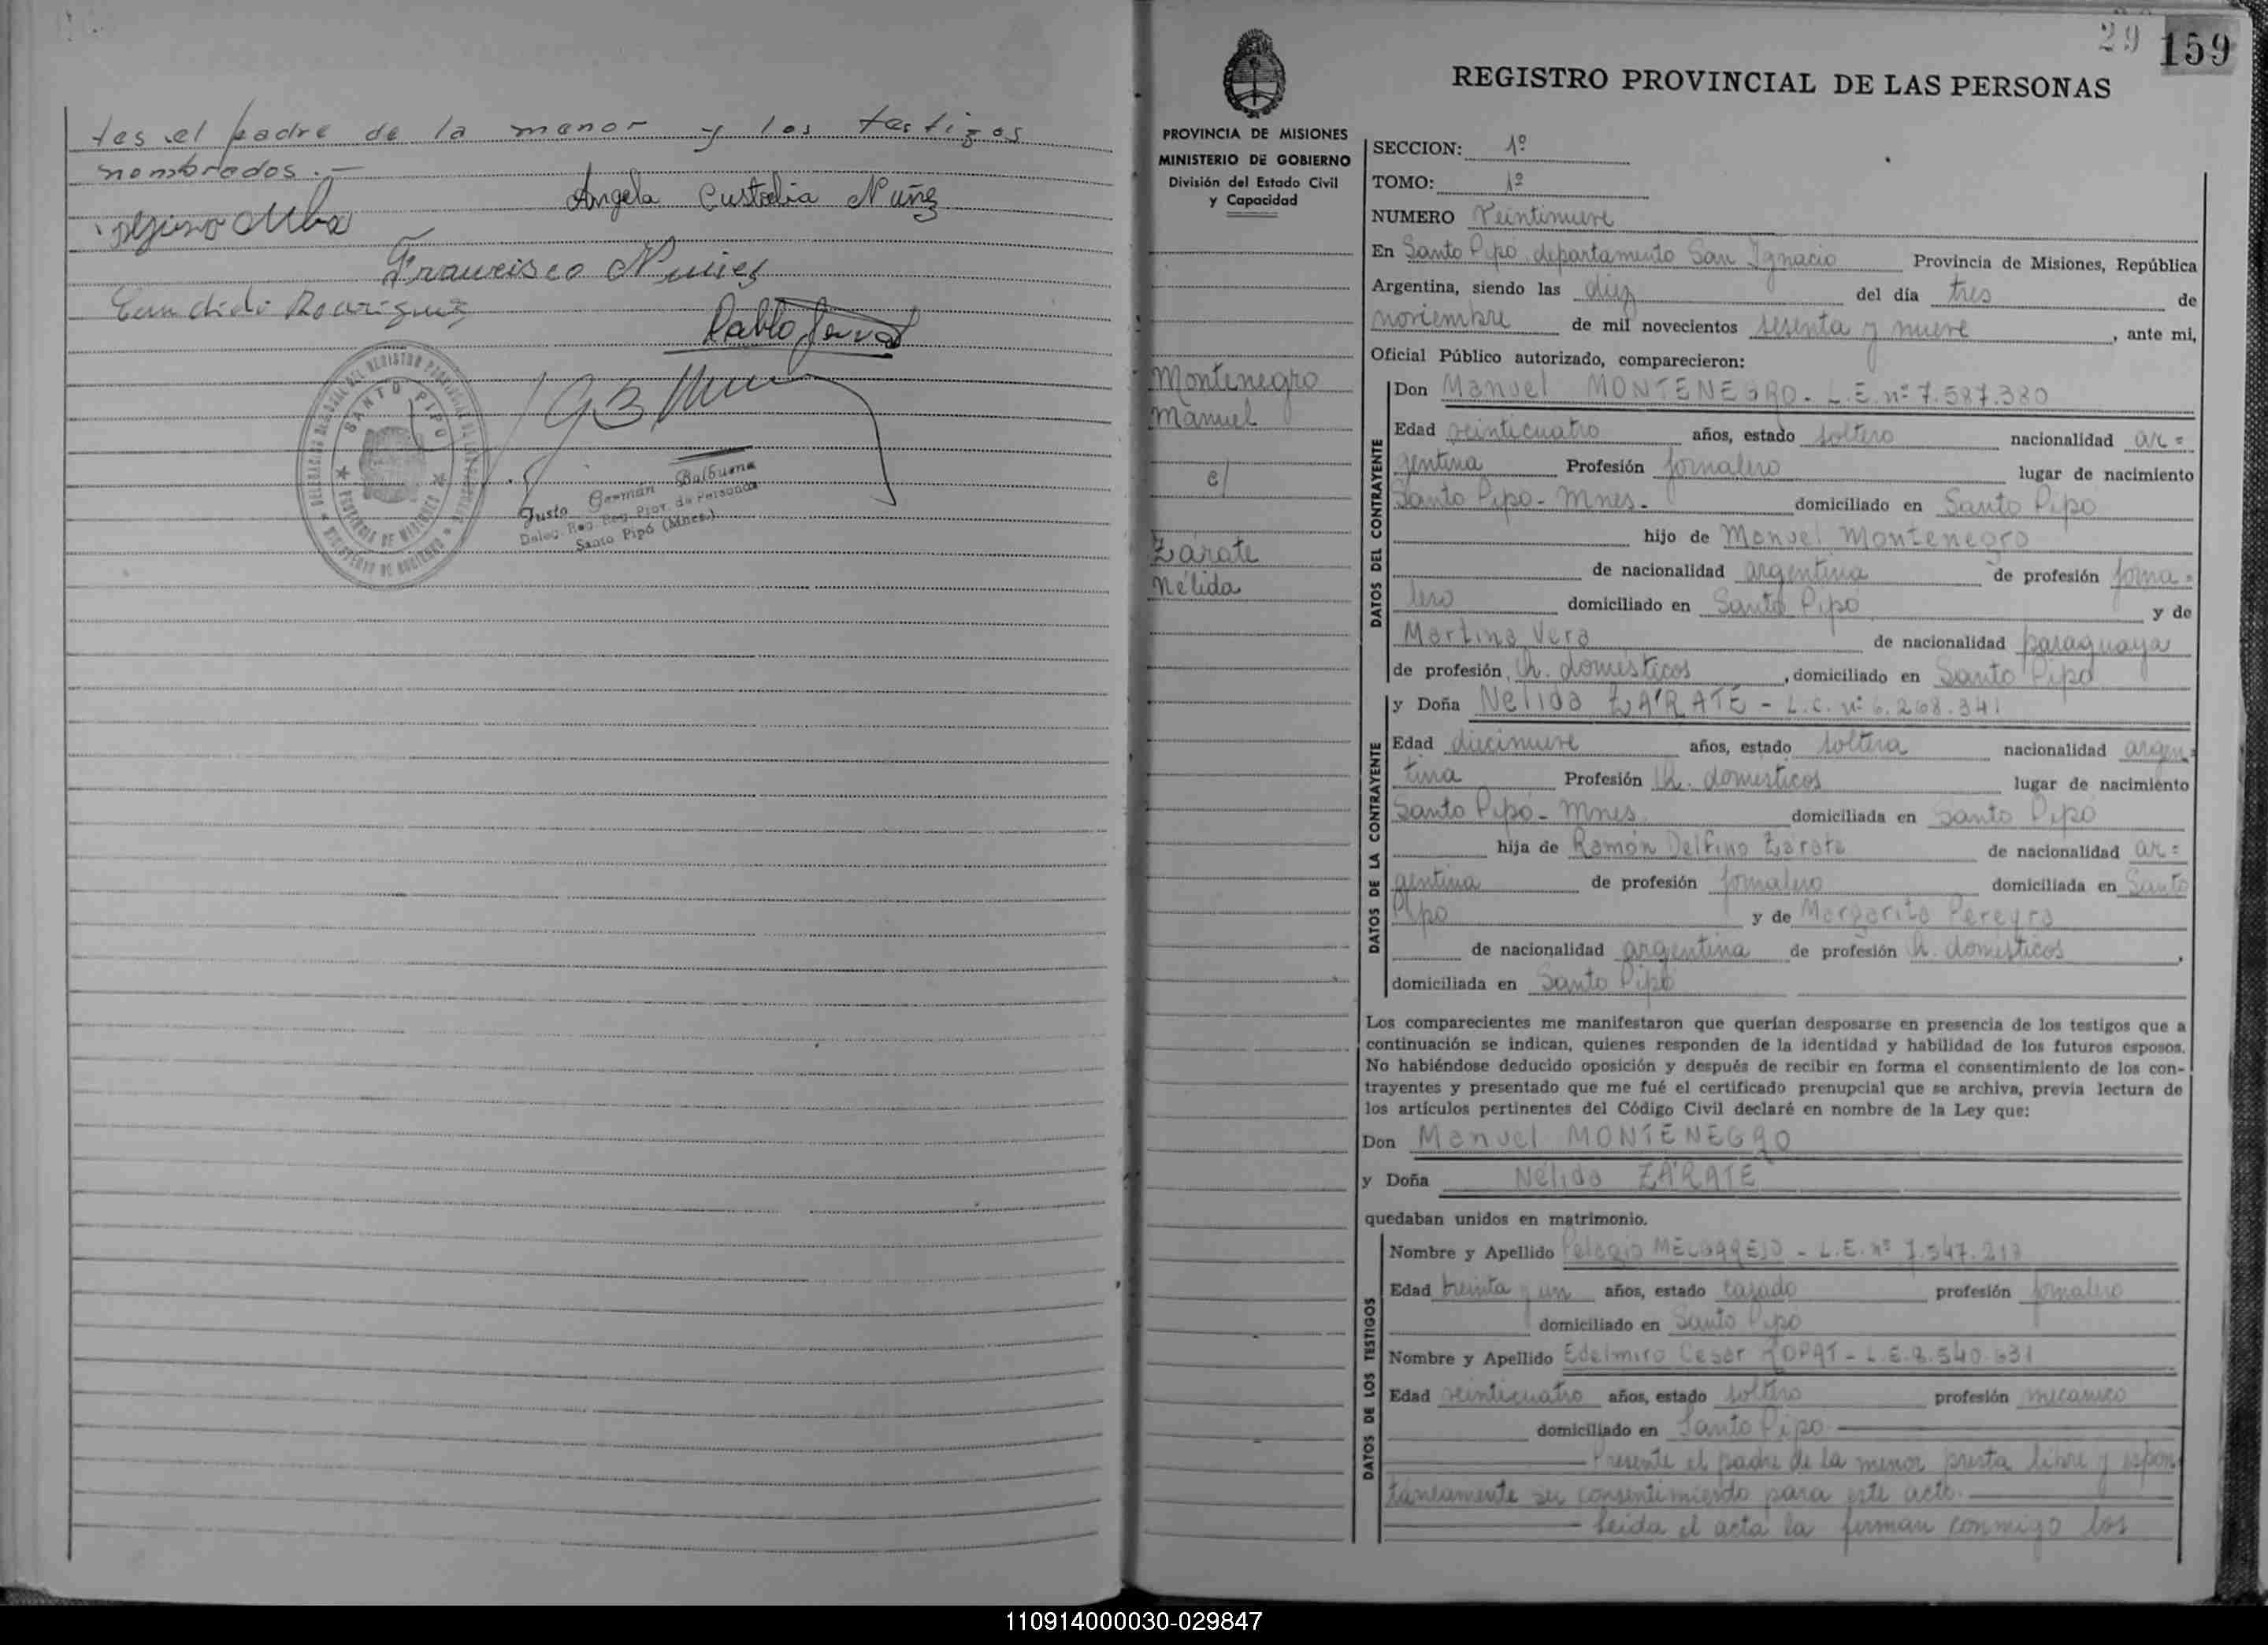 tes el padre de la menor y los testigos
nombrados.-
Angela Custodia Nuñez
Francisco Nuñez
Candido Rodriguez
Pablo
SANTO PIPO
PROVINCIA DE MISIONES
Justo Germán Balbuena
Deleg. Reg. Prov. de Personas
Santo Pipó (Mnes.)
29 159
REGISTRO PROVINCIAL DE LAS PERSONAS
PROVINCIA DE MISIONES
MINISTERIO DE GOBIERNO
División del Estado Civil
y Capacidad
Montenegro
Manuel
c/
Zárate
Nélida
SECCION: 1º
TOMO: 1º
NUMERO Veintinueve
En Santo Pipó, departamento San Ignacio Provincia de Misiones, República
Argentina, siendo las diez del día tres de
noviembre de mil novecientos sesenta y nueve, ante mi,
Oficial Público autorizado, comparecieron:
DATOS DEL CONTRAYENTE
Don Manuel MONTENEGRO - L.E. nº 7.587.380
Edad veinticuatro años, estado soltero nacionalidad ar=
gentina Profesión jornalero lugar de nacimiento
Santo Pipó - Mnes. domiciliado en Santo Pipó
hijo de Manuel Montenegro
de nacionalidad argentina de profesión jorna=
lero domiciliado en Santo Pipó y de
Martina Vera de nacionalidad paraguaya
de profesión, Q. domésticos, domiciliado en Santo Pipó
DATOS DE LA CONTRAYENTE
y Doña Nélida ZÁRATE - L.C. nº 6.268.341
Edad diecinueve años, estado soltera nacionalidad argen=
tina Profesión Q. domésticos lugar de nacimiento
Santo Pipó - Mnes. domiciliada en Santo Pipó
hija de Ramón Delfino Zárate de nacionalidad ar=
gentina de profesión jornalero domiciliada en Santo
Pipó y de Margarita Pereyra
de nacionalidad argentina de profesión Q. domésticos,
domiciliada en Santo Pipó
Los comparecientes me manifestaron que querían desposarse en presencia de los testigos que a
continuación se indican, quienes responden de la identidad y habilidad de los futuros esposos.
No habiéndose deducido oposición y después de recibir en forma el consentimiento de los con-
trayentes y presentado que me fué el certificado prenupcial que se archiva, previa lectura de
los artículos pertinentes del Código Civil declaré en nombre de la Ley que:
Don Manuel MONTENEGRO
y Doña Nélida ZÁRATE
quedaban unidos en matrimonio.
DATOS DE LOS TESTIGOS
Nombre y Apellido Pelagio MELGAREJO - L.E. nº 7.547.213
Edad treinta y un años, estado casado profesión jornalero
domiciliado en Santo Pipó
Nombre y Apellido Edelmiro Cesar - L.E. 8.540.631
Edad veinticuatro años, estado soltero profesión mecánico
domiciliado en Santo Pipó
Presente el padre de la menor presta libre y espon
táneamente su consentimiento para este acto.
Leida el acta la firman conmigo los
110914000030-029847